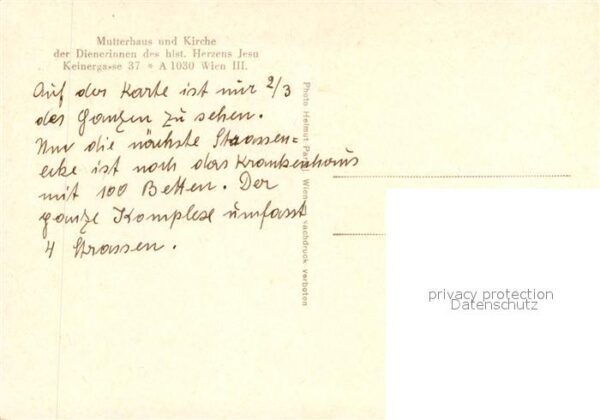 Mutterhaus und Kirche
der Dienerinnen des hlst. Herzens Jesu
Keinergasse 37 * A 1030 Wien III.
Auf der Karte ist nur 2/3
des Ganzen zu sehen.
Nur die nächste Straassen=
ecke ist noch das Krankenhaus
mit 100 Betten. Der
ganze Komplexe umfasst
4 Strassen.
Photo Helmut Wien Nachdruck verboten
privacy protection
Datenschutz